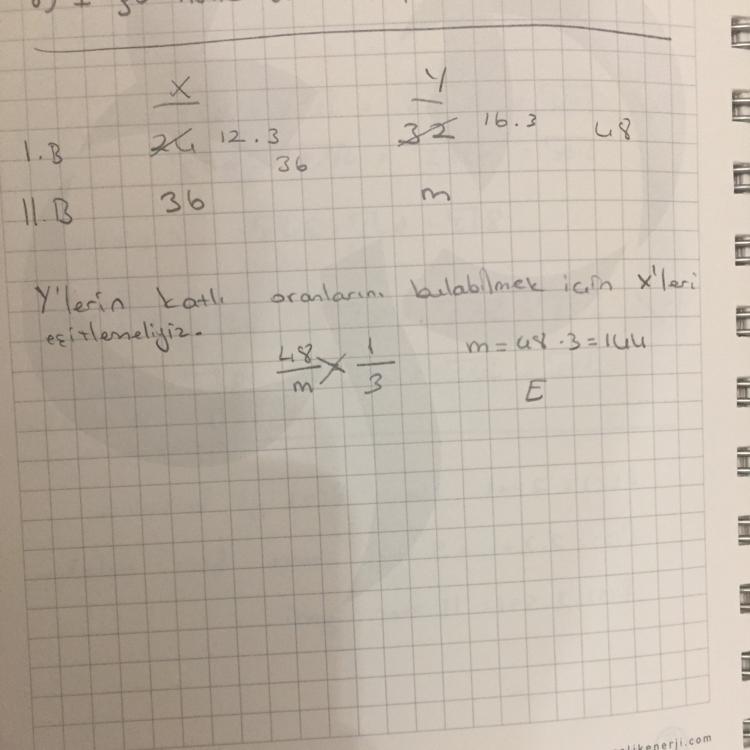 X Y
I.B 24 12.3 32 16.3 48
36
II.B 36 m
Y'lerin katlı oranlarını bulabilmek için X'leri
eşitlemeliyiz.
48/m 1/3 m = 48.3 = 144
E
enerji.com